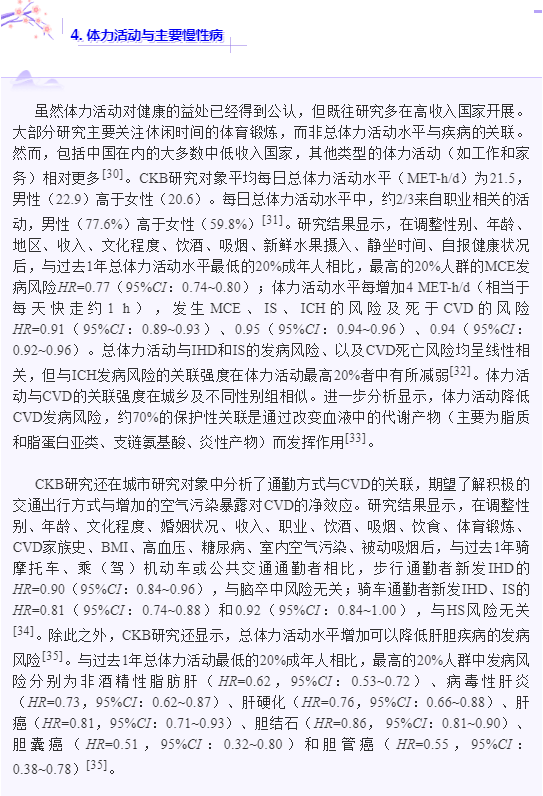 4. 体力活动与主要慢性病
虽然体力活动对健康的益处已经得到公认，但既往研究多在高收入国家开展。
大部分研究主要关注休闲时间的体育锻炼，而非总体力活动水平与疾病的关联。
然而，包括中国在内的大多数中低收入国家，其他类型的体力活动（如工作和家
务）相对更多[30]。CKB研究对象平均每日总体力活动水平（MET-h/d）为21.5，
男性（22.9）高于女性（20.6）。每日总体力活动水平中，约2/3来自职业相关的活
动，男性（77.6%）高于女性（59.8%）[31]。研究结果显示，在调整性别、年龄、
地区、收入、文化程度、饮酒、吸烟、新鲜水果摄入、静坐时间、自报健康状况
后，与过去1年总体力活动水平最低的20%成年人相比，最高的20%人群的MCE发
病风险HR=0.77（95%CI：0.74~0.80）；体力活动水平每增加4 MET-h/d（相当于
每天快走约1 h），发生MCE、IS、ICH的风险及死于CVD的风险
HR=0.91（95%CI：0.89~0.93）、0.95（95%CI：0.94~0.96）、0.94（95%CI：
0.92~0.96）。总体力活动与IHD和IS的发病风险、以及CVD死亡风险均呈线性相
关，但与ICH发病风险的关联强度在体力活动最高20%者中有所减弱[32]。体力活
动与CVD的关联强度在城乡及不同性别组相似。进一步分析显示，体力活动降低
CVD发病风险，约70%的保护性关联是通过改变血液中的代谢产物（主要为脂质
和脂蛋白亚类、支链氨基酸、炎性产物）而发挥作用[33]。
CKB研究还在城市研究对象中分析了通勤方式与CVD的关联，期望了解积极的
交通出行方式与增加的空气污染暴露对CVD的净效应。研究结果显示，在调整性
别、年龄、文化程度、婚姻状况、收入、职业、饮酒、吸烟、饮食、体育锻炼、
CVD家族史、BMI、高血压、糖尿病、室内空气污染、被动吸烟后，与过去1年骑
摩托车、乘（驾）机动车或公共交通通勤者相比，步行通勤者新发IHD的
HR=0.90（95%CI：0.84~0.96），与脑卒中风险无关；骑车通勤者新发IHD、IS的
HR=0.81（95%CI：0.74~0.88）和0.92（95%CI：0.84~1.00），与HS风险无关
[34]。除此之外，CKB研究还显示，总体力活动水平增加可以降低肝胆疾病的发病
风险[35]。与过去1年总体力活动最低的20%成年人相比，最高的20%人群中发病风
险分别为非酒精性脂肪肝（HR=0.62，95%CI：0.53~0.72）、病毒性肝炎
（HR=0.73，95%CI：0.62~0.87）、肝硬化（HR=0.76，95%CI：0.66~0.88）、肝
癌（HR=0.81，95%CI：0.71~0.93）、胆结石（HR=0.86， 95%CI：0.81~0.90）、
胆囊癌（HR=0.51，95%CI：0.32~0.80）和胆管癌（HR=0.55，95%CI：
0.38~0.78）[35]。